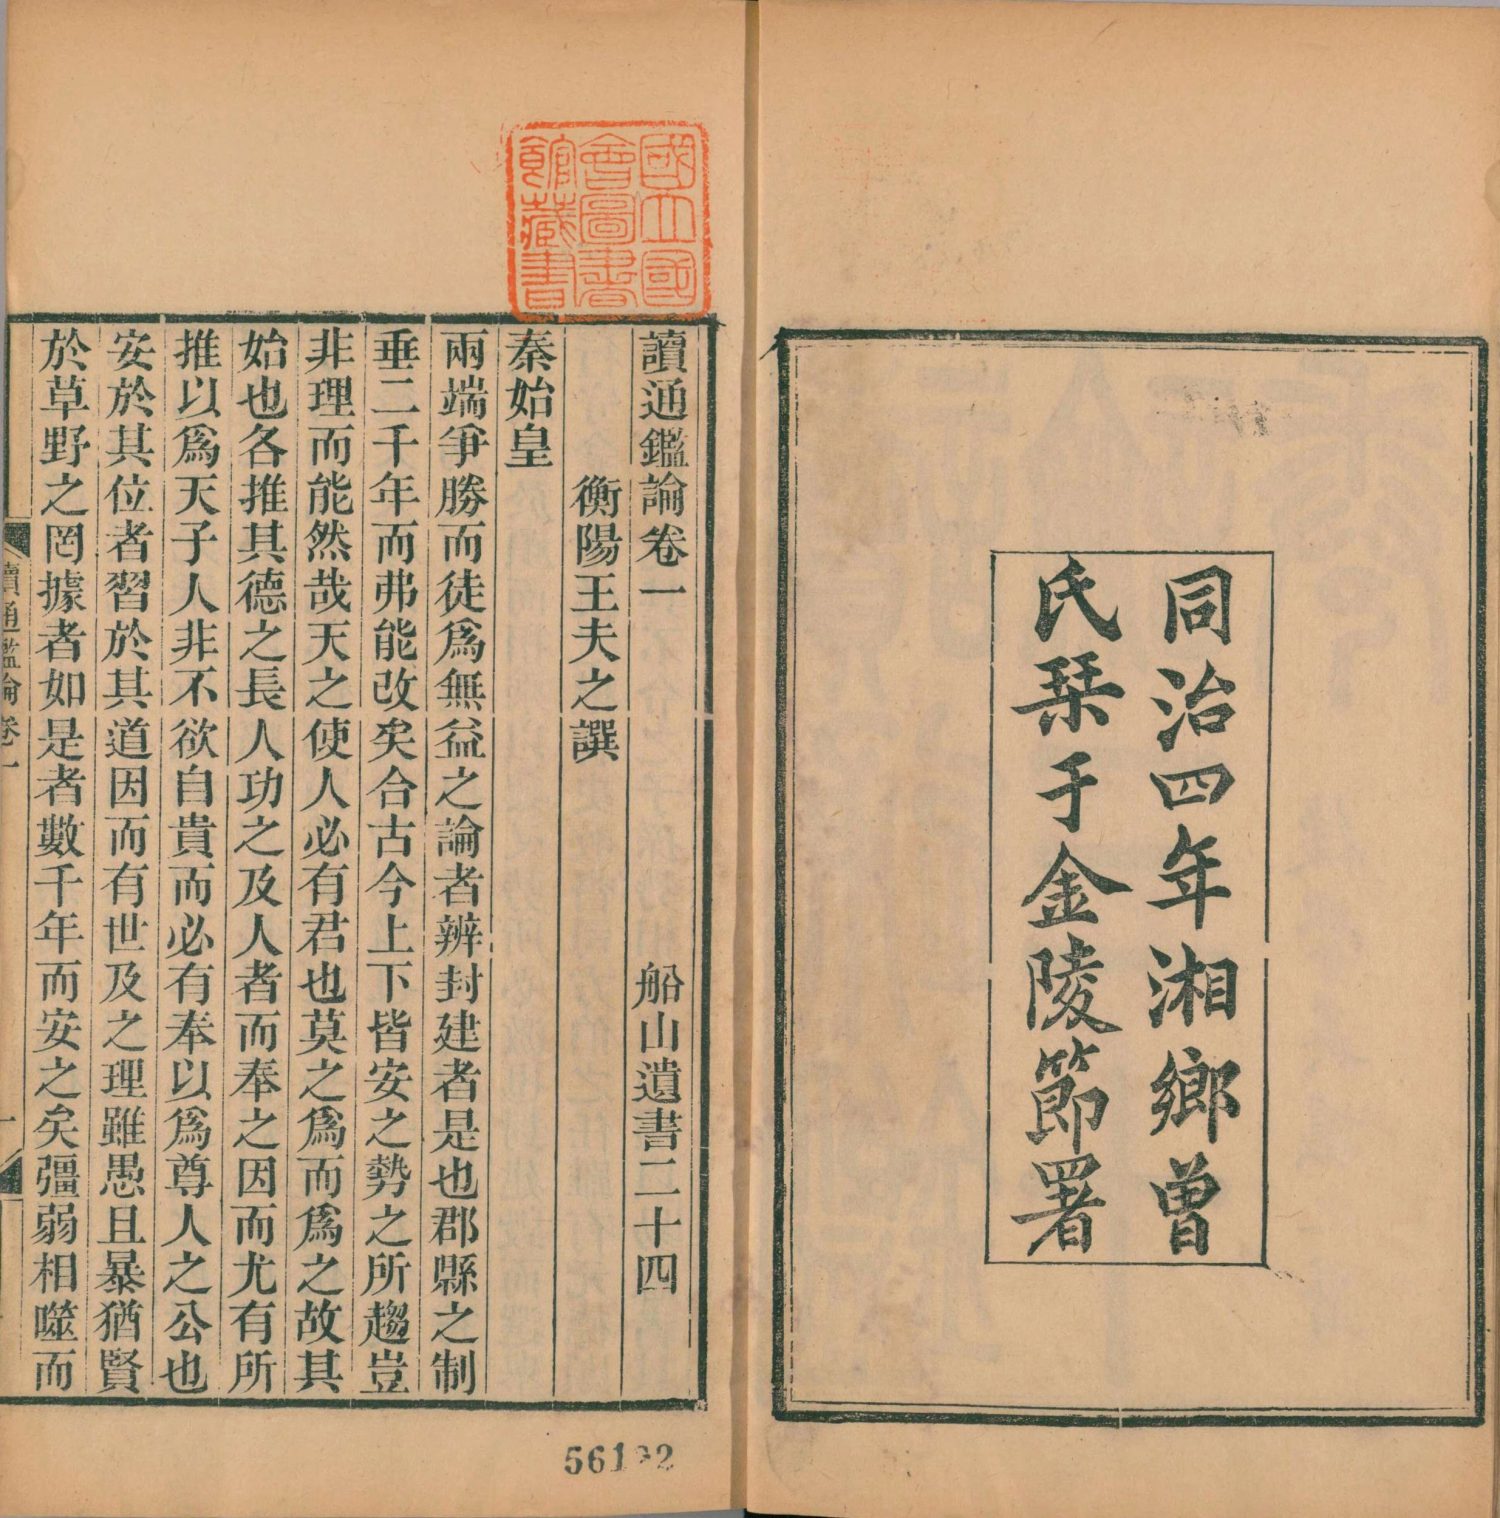 同治四年湘鄉曾
氏栞于金陵節署
國立國
會圖書
館藏書
讀通鑑論卷一 船山遺書二十四
衡陽王夫之譔
秦始皇
兩端爭勝而徒爲無益之論者辨封建者是也郡縣之制
垂二千年而弗能改矣合古今上下皆安之勢之所趨豈
非理而能然哉天之使人必有君也莫之爲而爲之故其
始也各推其德之長人功之及人者而奉之因而尤有所
推以爲天子人非不欲自貴而必有奉以爲尊人之公也
安於其位者習於其道因而有世及之理雖愚且暴猶賢
於草野之罔據者如是者數千年而安之矣彊弱相噬而
讀通鑑論卷一
一